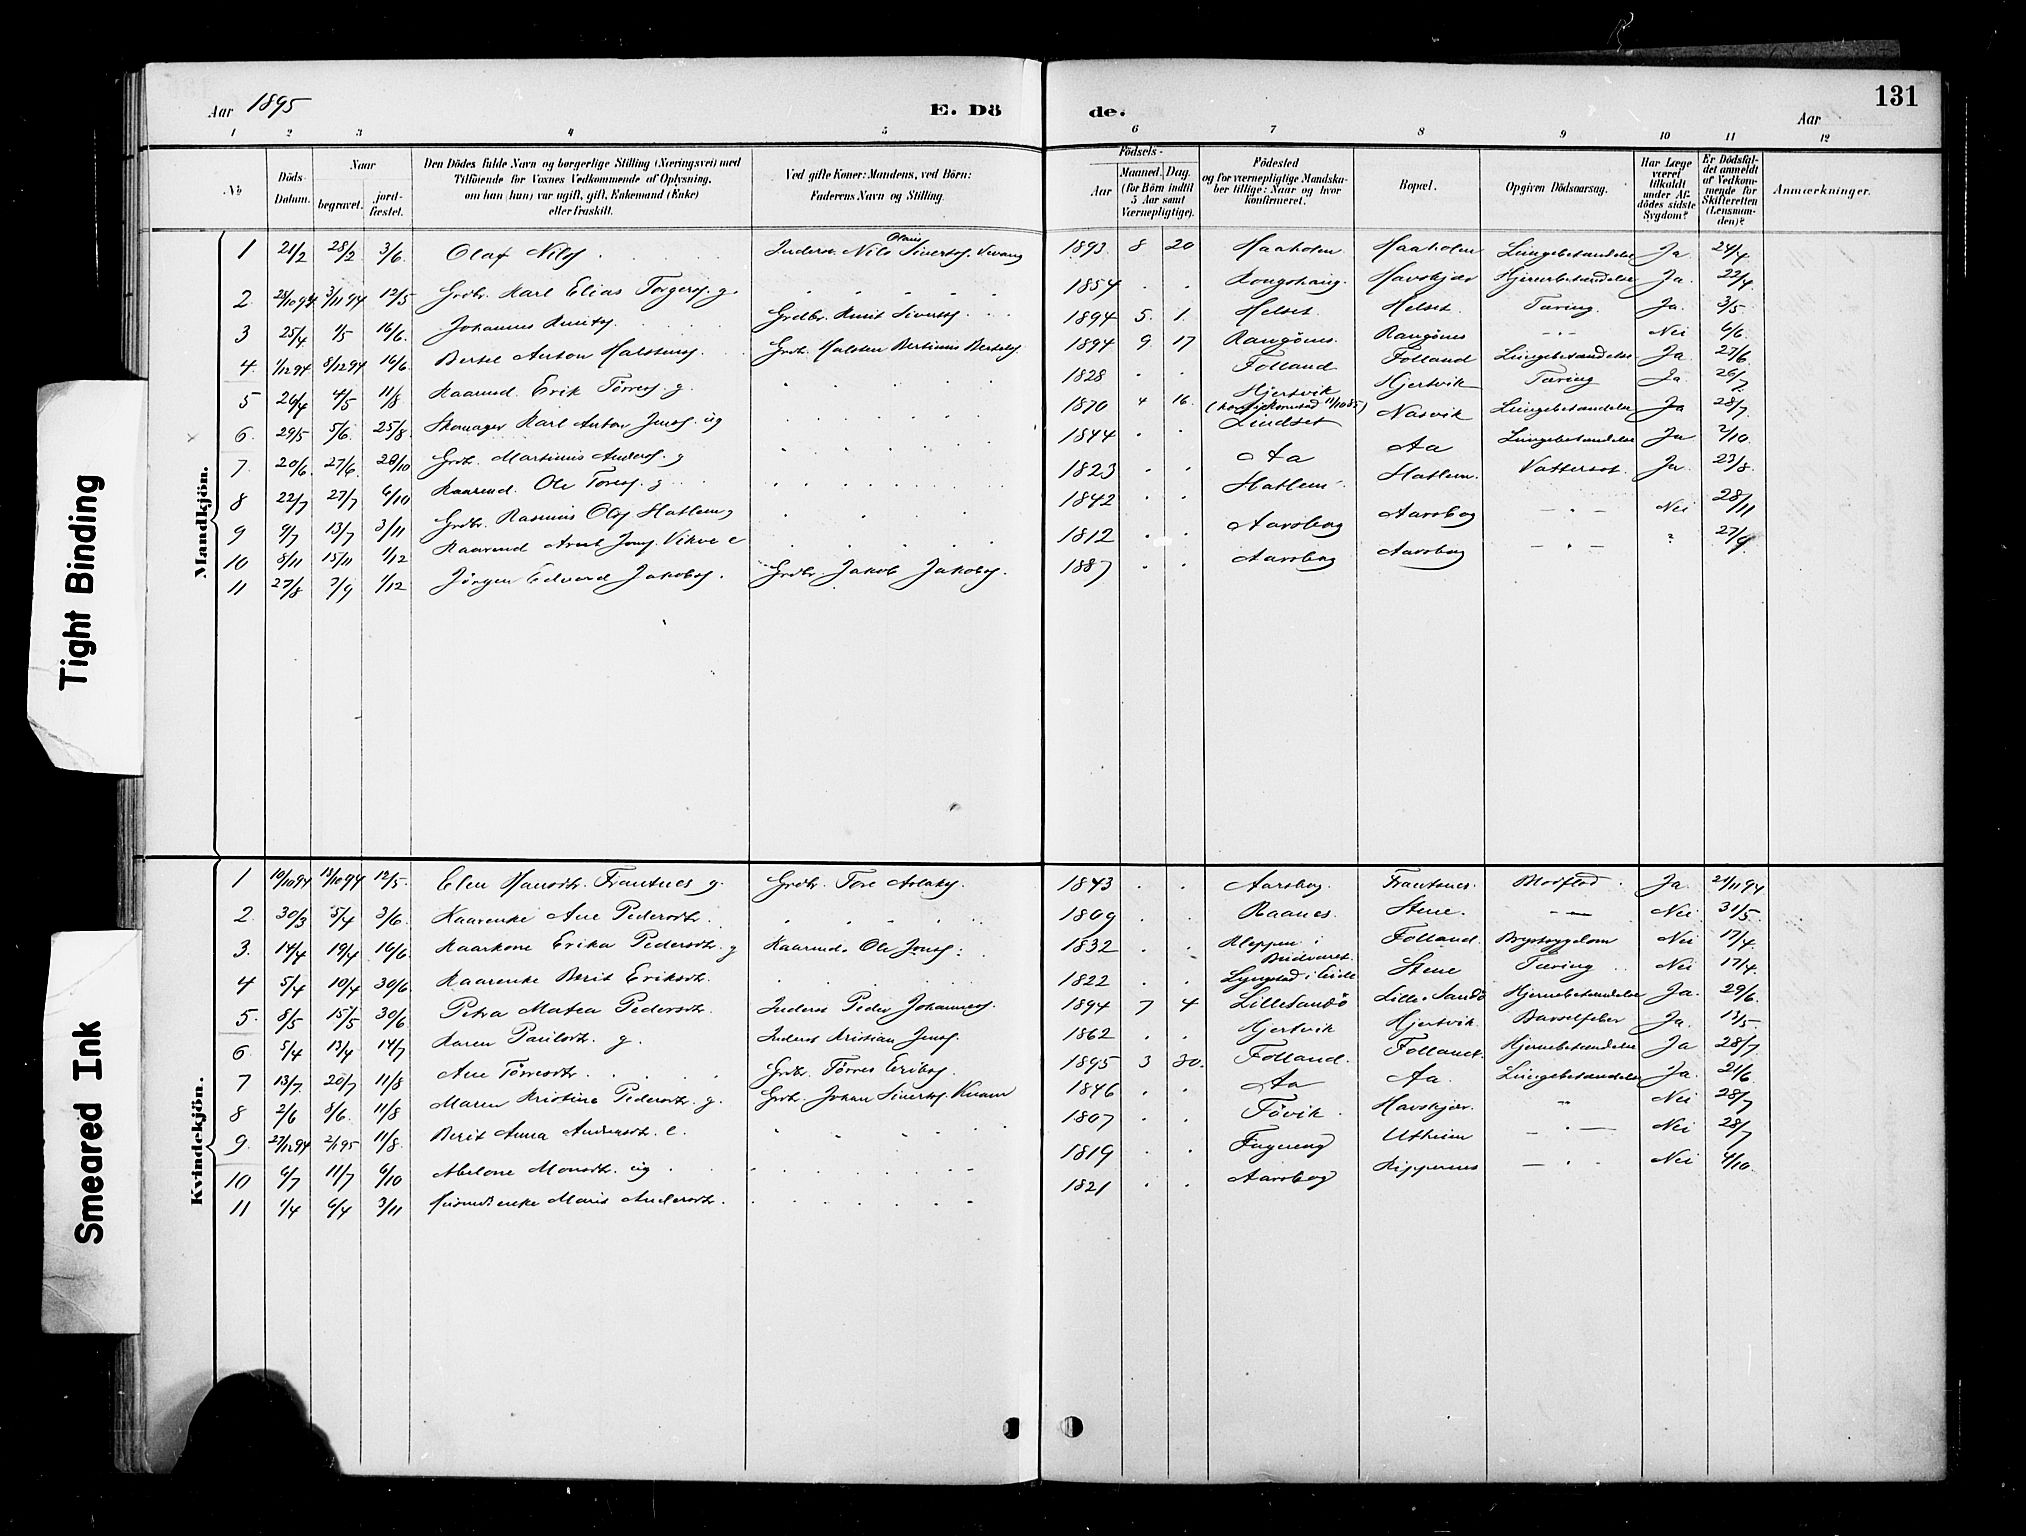 131
Aar 1895
E. Dö
de.
Aar
1 2 3 4 5 6 7 8 9 10 11 12
No
Döds-Datum.
Naar
begravet.
jord-fæstet.
Den Dödes fulde Navn og borgerlige Stilling (Næringsvei) med
Tilföiende for Voxnes Vedkommende af Oplysning,
om han (hun) var ugift, gift, Enkemand (Enke)
eller fraskilt.
Ved gifte Koner: Mandens, ved Börn:
Faderens Navn og Stilling.
Födsels-
Aar
Maaned. Dag.
(for Börn indtil
5 Aar samt
Værnepligtige).
Födested
og for værnepligtige Mandska-
ber tillige: Naar og hvor
konfirmeret.
Bopæl.
Opgiven Dödsaarsag.
Har Læge
været
tilkaldt
under Af-
dödes sidste
Sygdom?
Er Dödsfal-
det anmeldt
af Vedkom-
mende for
Skifteretten
(Lensman-
den)?
Anmærkninger.
Mandkjön.
1 21/2 28/2 3/6 Olaf Nils. Inders. Nils Olaus Siverts. Vevang 1893 8 20 Haaholm Haaholm Lungebetændelse Ja 24/4
2 28/10 94 3/11 94 12/5 Grdbr. Karl Elias Torgers. g. 1854 Kongshaug Havskjær Hjernebetændelse Ja. 22/4
3 25/4 1/5 16/6 Johannes Knuts. Grdbr. Knut Siverts. 1894 5 1 Helset Helset Tæring. Ja. 3/5
4 1/12 94 8/12 94 16/6 Bertel Anton Halstens. Grdb. Halsten Bertinius Bertels. 1894 9 17 Rangönes Rangönes Nei 6/6
5 26/4 4/5 11/8 Kaarmd. Erik Törres. g. 1828 Folland Folland Lungebetændelse Ja 27/6
6 29/5 5/6 25/8 Skomager Karl Anton Jens. ug 1870 4 16 Hjertvik Hjertvik Tæring Ja 26/7
7 20/6 27/6 20/10 Grdb. Martinus Anders. g 1844 Lindset Nasvik Lungebetændelse Ja 28/7
8 22/7 27/7 6/10 Kaarmd. Ole Tores. g 1823 Aa Aa Lungebetændelse Ja 2/10
9 9/7 13/7 3/11 Grdbr. Rasmus Ols. Hatlem g 1842 Hatlem Hatlem Vattersot. Ja 23/8
10 8/11 15/11 1/12 Kaarmd Arnt Jons. Vikve e 1812 Aarsbog Aarsbog Nei 28/11
11 27/8 7/9 1/12 Jörgen Edvard Jakobs. Grdbr. Jakob Jakobs. 1887 Aarsbog Aarsbog ? 27/9
Kvindekjön.
1 10/10 94 13/10 94 12/5 Elen Hansdtr. Frantsnes g. Grdbr. Tore Aslaks. 1843 Aarsbog. Frantsnes Blodflod Ja 21/11 94
2 30/3 5/4 3/6 Kaarenke Ane Pedersdtr. 1809 Raanes. Stene. Nei 31/5
3 14/4 19/4 16/6 Kaarkone Erika Pedersdtr. g Kaarmd. Ole Jons. 1832 Kleppen i Folland. Brystsygdom Nei 17/4
4 5/4 10/4 30/6 Kaarenke Berit Eriksdtr. 1822 Lyngstad i Eide Stene Tæring Nei 17/4
5 8/5 15/5 30/6 Petra Matea Pedersdtr. Inders Peder Johannes. 1894 7 4 Lillesandö Lille Sandö Hjernebetændelse Ja. 29/6
6 5/4 13/4 14/7 Karen Paulsdtr. g. Inders Kristian Jens. 1862 Hjertvik Hjertvik Barselfeber Ja. 13/5
7 13/7 20/7 11/8 Ane Törresdtr. Grdb. Törres Eriks. 1895 3 30. Folland. Folland. Hjernebetændelse Ja 28/7
8 2/6 8/6 11/8 Maren Kristine Pedersdtr. g. Grdb. Johan Siverts. Kvam 1846 Aa Aa. Lungebetændelse Ja. 21/6
9 27/12 94 2/1 95 11/8 Berit Anna Andersdtr. e. 1807 Tövik Havskjær. Nei 28/7
10 6/7 11/7 6/10 Abelone Monsdtr. ug 1819 Fugereng Utheim Nei 28/7
11 1/4 6/4 3/11 Husmdsenke Marit Andersdtr. 1821 Aarsbog Rippernes Nei 4/10
Tight Binding
Smeared Ink